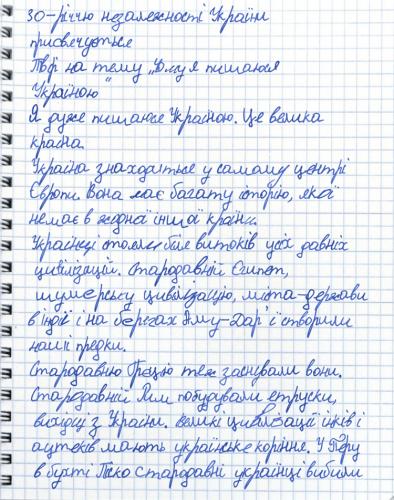 30-річчю незалежності України
присвячується
Твір на тему „Чому я пишаюся
Україною"
Я дуже пишаюся Україною. Це велика
країна.
Україна знаходиться у самому центрі
Європи. Вона має багату історію, якої
немає в жодної іншої країни.
Українці стояли біля витоків усіх давніх
цивілізацій. Стародавній Єгипет,
шумерську цивілізацію, міста-держави
в Індії і на берегах Аму-Дар'ї створили
наші предки.
Стародавню Грецію теж заснували вони.
Стародавній Рим побудували етруски,
вихідці з України. Великі цивілізації інків і
ацтеків мають українське коріння. У Перу
в бухті Піско стародавні українці вибили